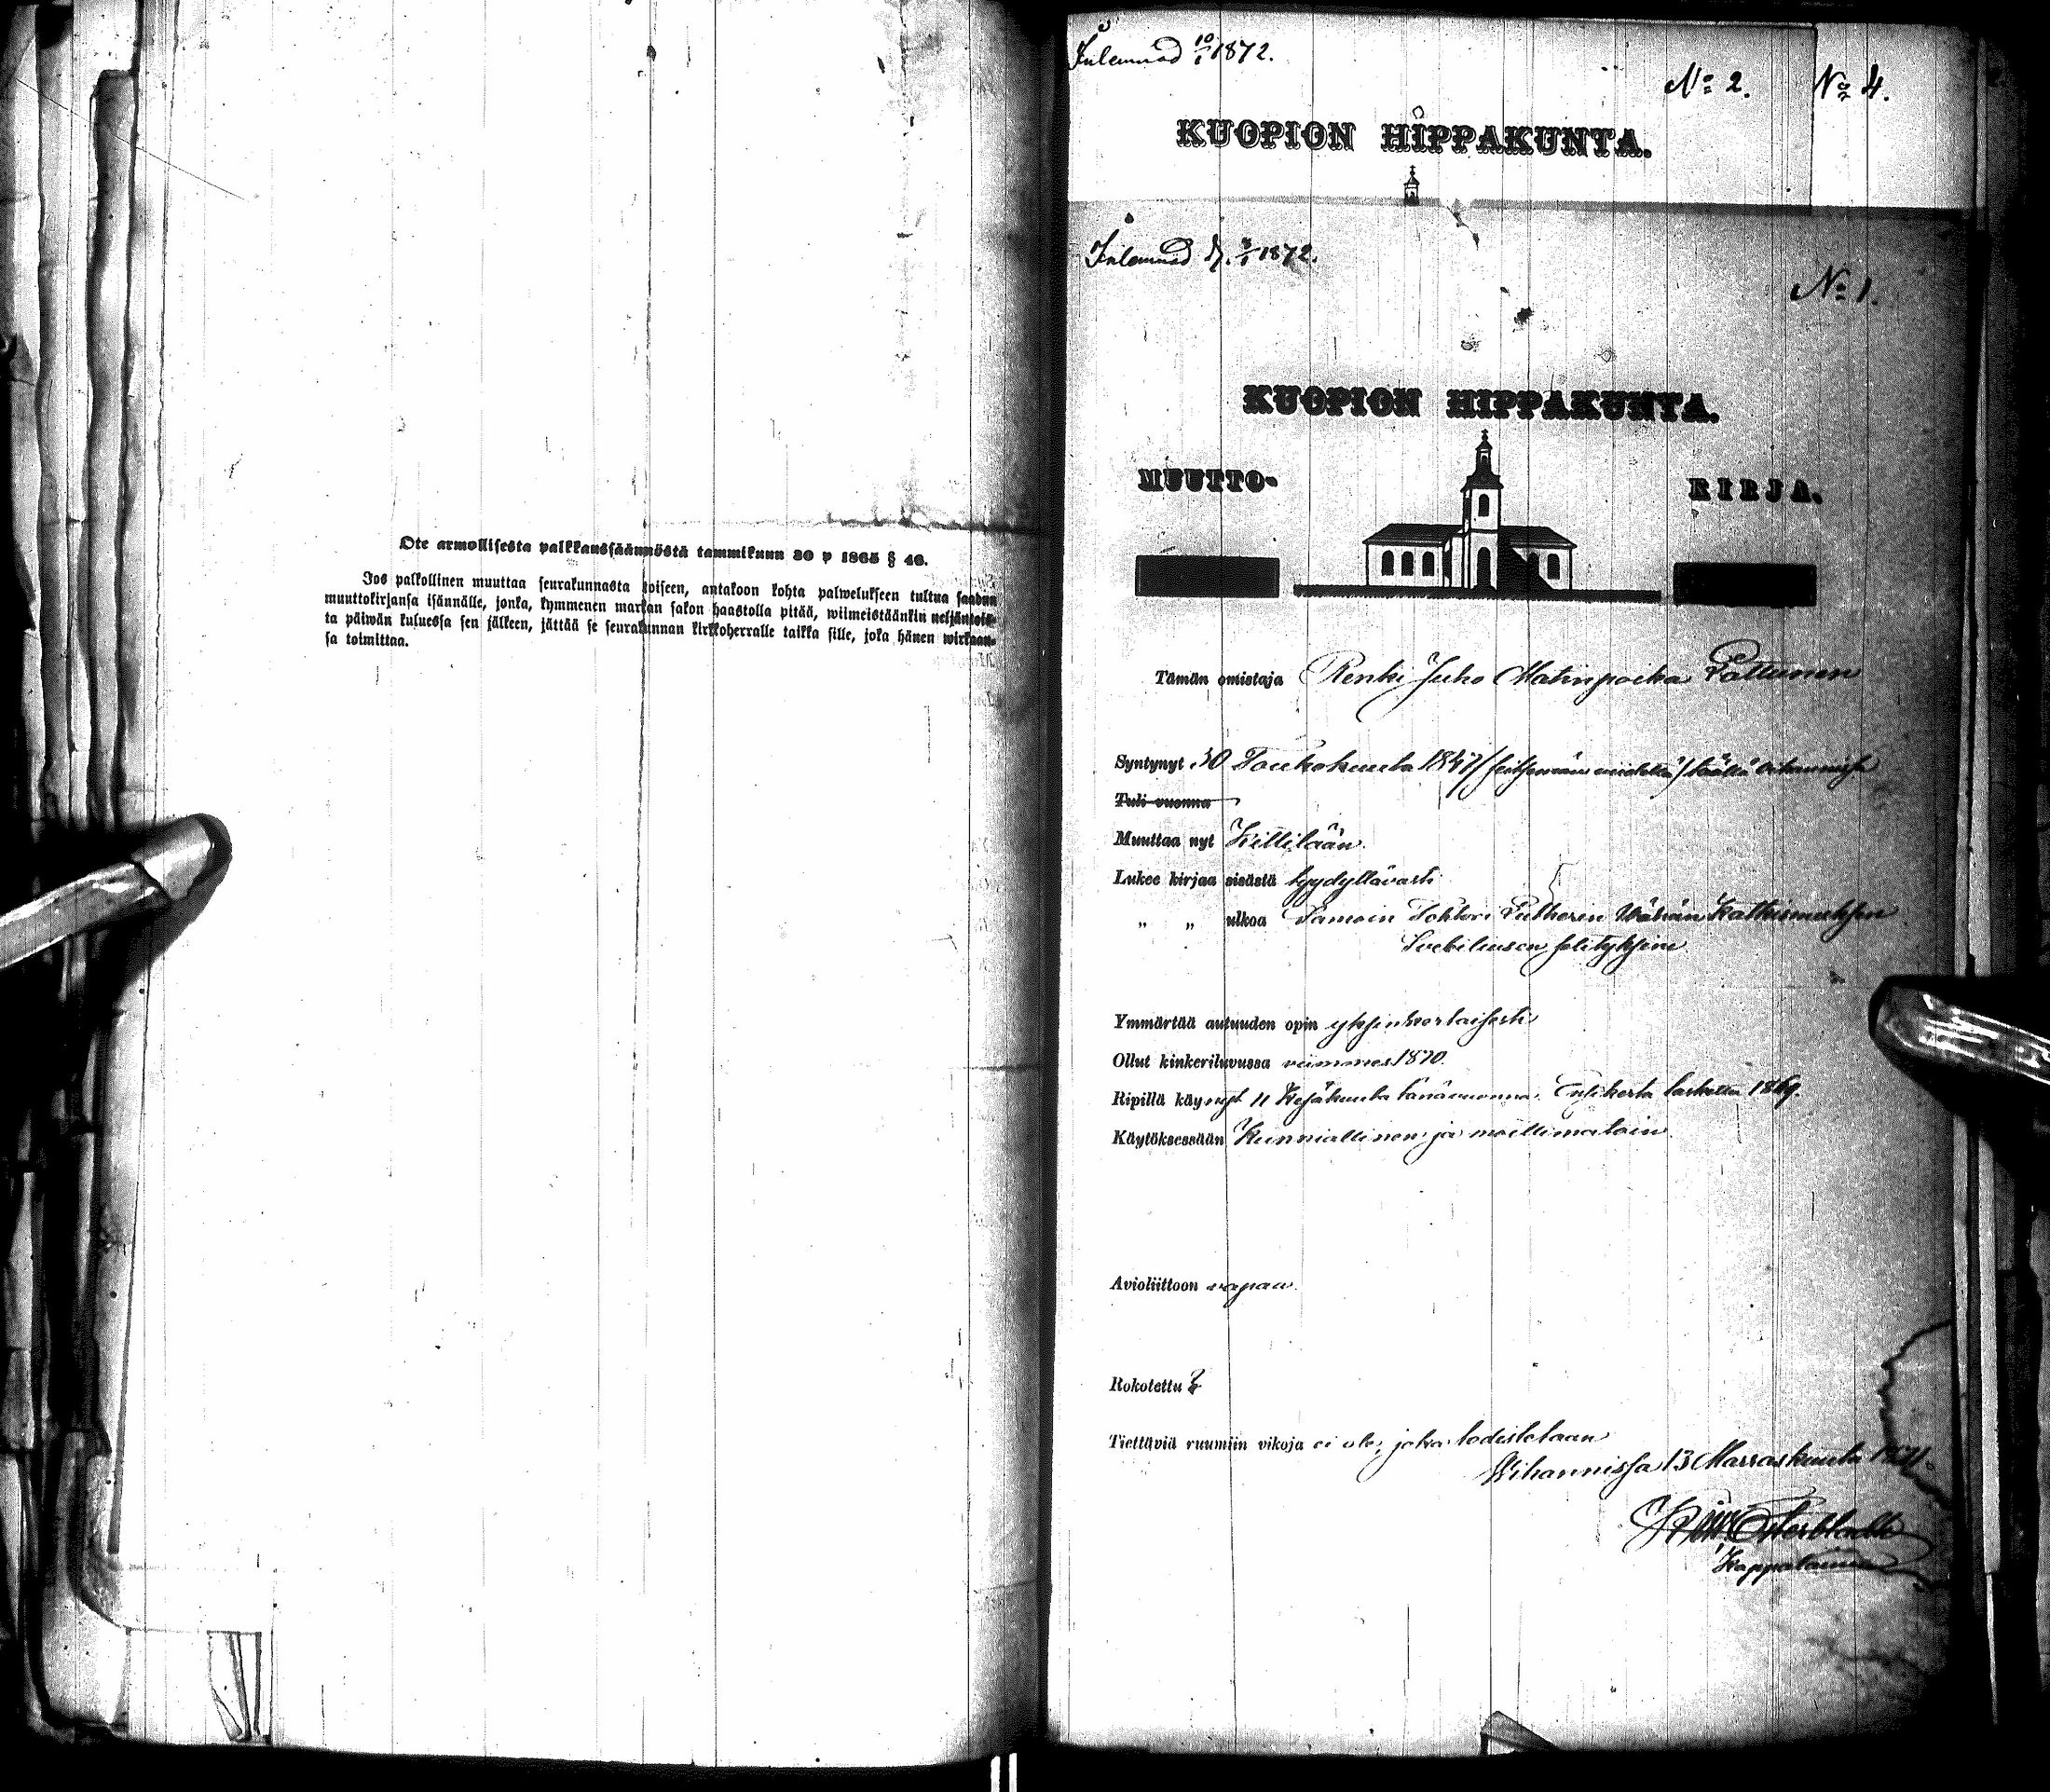 Ote armollisesta palkkaussäännöstä tammikuun 30 p 1865 § 46.
Jos palkollinen muuttaa seurakunnasta toiseen, antakoon kohta palwelukseen tultua saadun
muuttokirjansa isännälle, jonka, kymmenen markan sakon haastolla pitää, wiimeistäänkin neljäntois-
ta päiwän kuluessa sen jälkeen, jättää se seurakunnan kirkkoherralle taikka sille, joka hänen wirkaan-
sa toimittaa.
Inlemnad 10/1 1872.
No 2.
No 4.
KUOPION HIPPAKUNTA.
Inlemnad d. 1872.
No 1.
KUOPION HIPPAKUNTA.
MUUTTO-
KIRJA.
Tämän omistaja Renki Juho Matinpoika Pattunen
Syntynyt 30 Toukokuuta 1847 / seitsemän / täällä
Tuli vuonna
Muuttaa nyt Kittilään.
Lukee kirjaa sisästä tyydyttävästi
„ „ ulkoa Samoin Tohtori Lutherin Wähän Katkismuksen
Svebiliusen selityksine
Ymmärtää autuuden opin yksinkertaisesti
Ollut kinkeriluvussa viimmes 1870.
Ripillä käynyt 11 Kesäkuuta tänävuonna. Ensikerta laskettu 1869.
Käytöksessään Kunniallinen ja moittimatoin.
Avioliittoon vapaa.
Rokotettu ?
Tiettäviä ruumiin vikoja ei ole; joka todistetaan
Wihannissa 13 Marraskuuta 1871.
Kappalainen